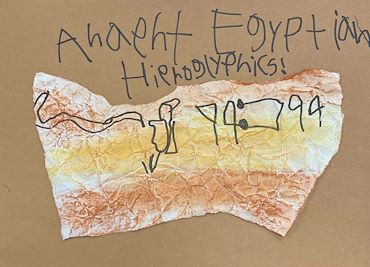 Anaeht Egyptian
Hieroglyphics!